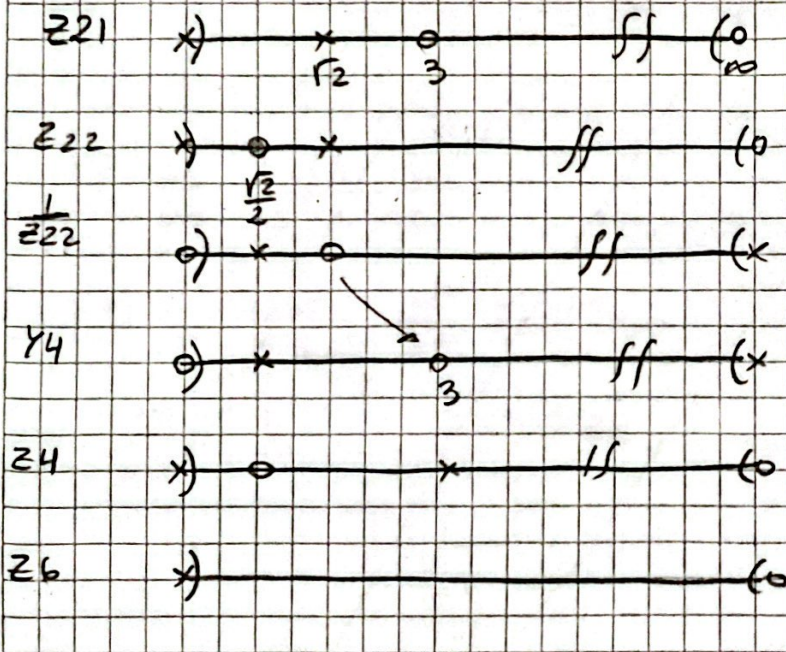 Z21
√2 3 ∞
Z22
√2/2
1/Z22
Y4
3
Z4
Z6